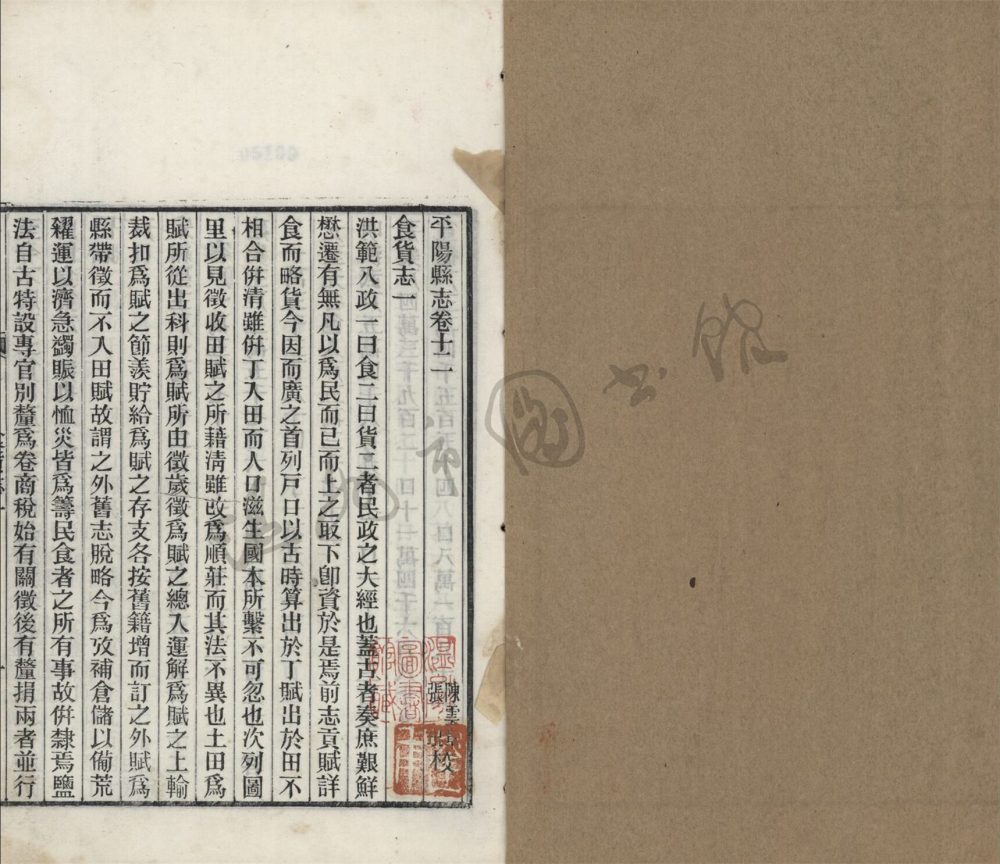 平陽縣志卷十二
陳雲
張
校
食貨志一
洪範八政一曰食二曰貨二者民政之大經也蓋古者奏庶艱鮮
懋遷有無凡以爲民而已而上之取下卽資於是焉前志貢賦詳
食而略貨今因而廣之首列戸口以古時算出於丁賦出於田不
相合倂清雖倂丁入田而人口滋生國本所繫不可忽也次列圖
里以見徵收田賦之所藉清雖改爲順莊而其法不異也土田爲
賦所從出科則爲賦所由徵歲徵爲賦之總入運解爲賦之上輸
裁扣爲賦之節羨貯給爲賦之存支各按舊籍增而訂之外賦爲
縣帶徵而不入田賦故謂之外舊志脫略今爲攷補倉儲以備荒
糴運以濟急蠲賑以恤災皆爲籌民食者之所有事故倂隸焉鹽
法自古特設專官別釐爲卷商稅始有關徵後有釐捐兩者並行
圖書
館